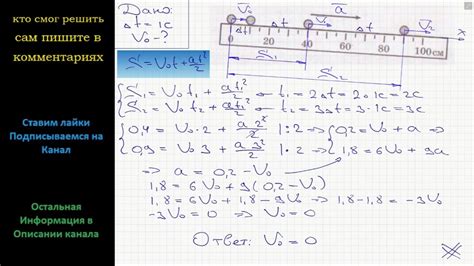 кто смог решить
сам пишите в
комментариях
Ставим лайки
Подписываемся на
Канал
Остальная
Информация в
Описании канала
Дано:
Δt = 1c
V₀ - ?
S = V₀t + at²/2
V₀ Δt V₁ Δt a V₂ x
0 20 40 60 80 100 см
S₁
S₂
S₁ = V₀t₁ + at₁²/2 t₁ = 2Δt = 2·1c = 2c
S₂ = V₀t₂ + at₂²/2 t₂ = 3Δt = 3·1c = 3c
0,4 = V₀·2 + a 2²/2 |:2 ⇒ 0,2 = V₀ + a ⇒
0,9 = V₀ 3 + a 3²/2 |·2 1,8 = 6V₀ + 9a
⇒ a = 0,2 - V₀
1,8 = 6V₀ + 9(0,2 - V₀)
1,8 = 6V₀ + 1,8 - 9V₀ ⇒ 1,8 - 1,8 = -3V₀
-3V₀ = 0 ⇒ V₀ = 0
Ответ: V₀ = 0